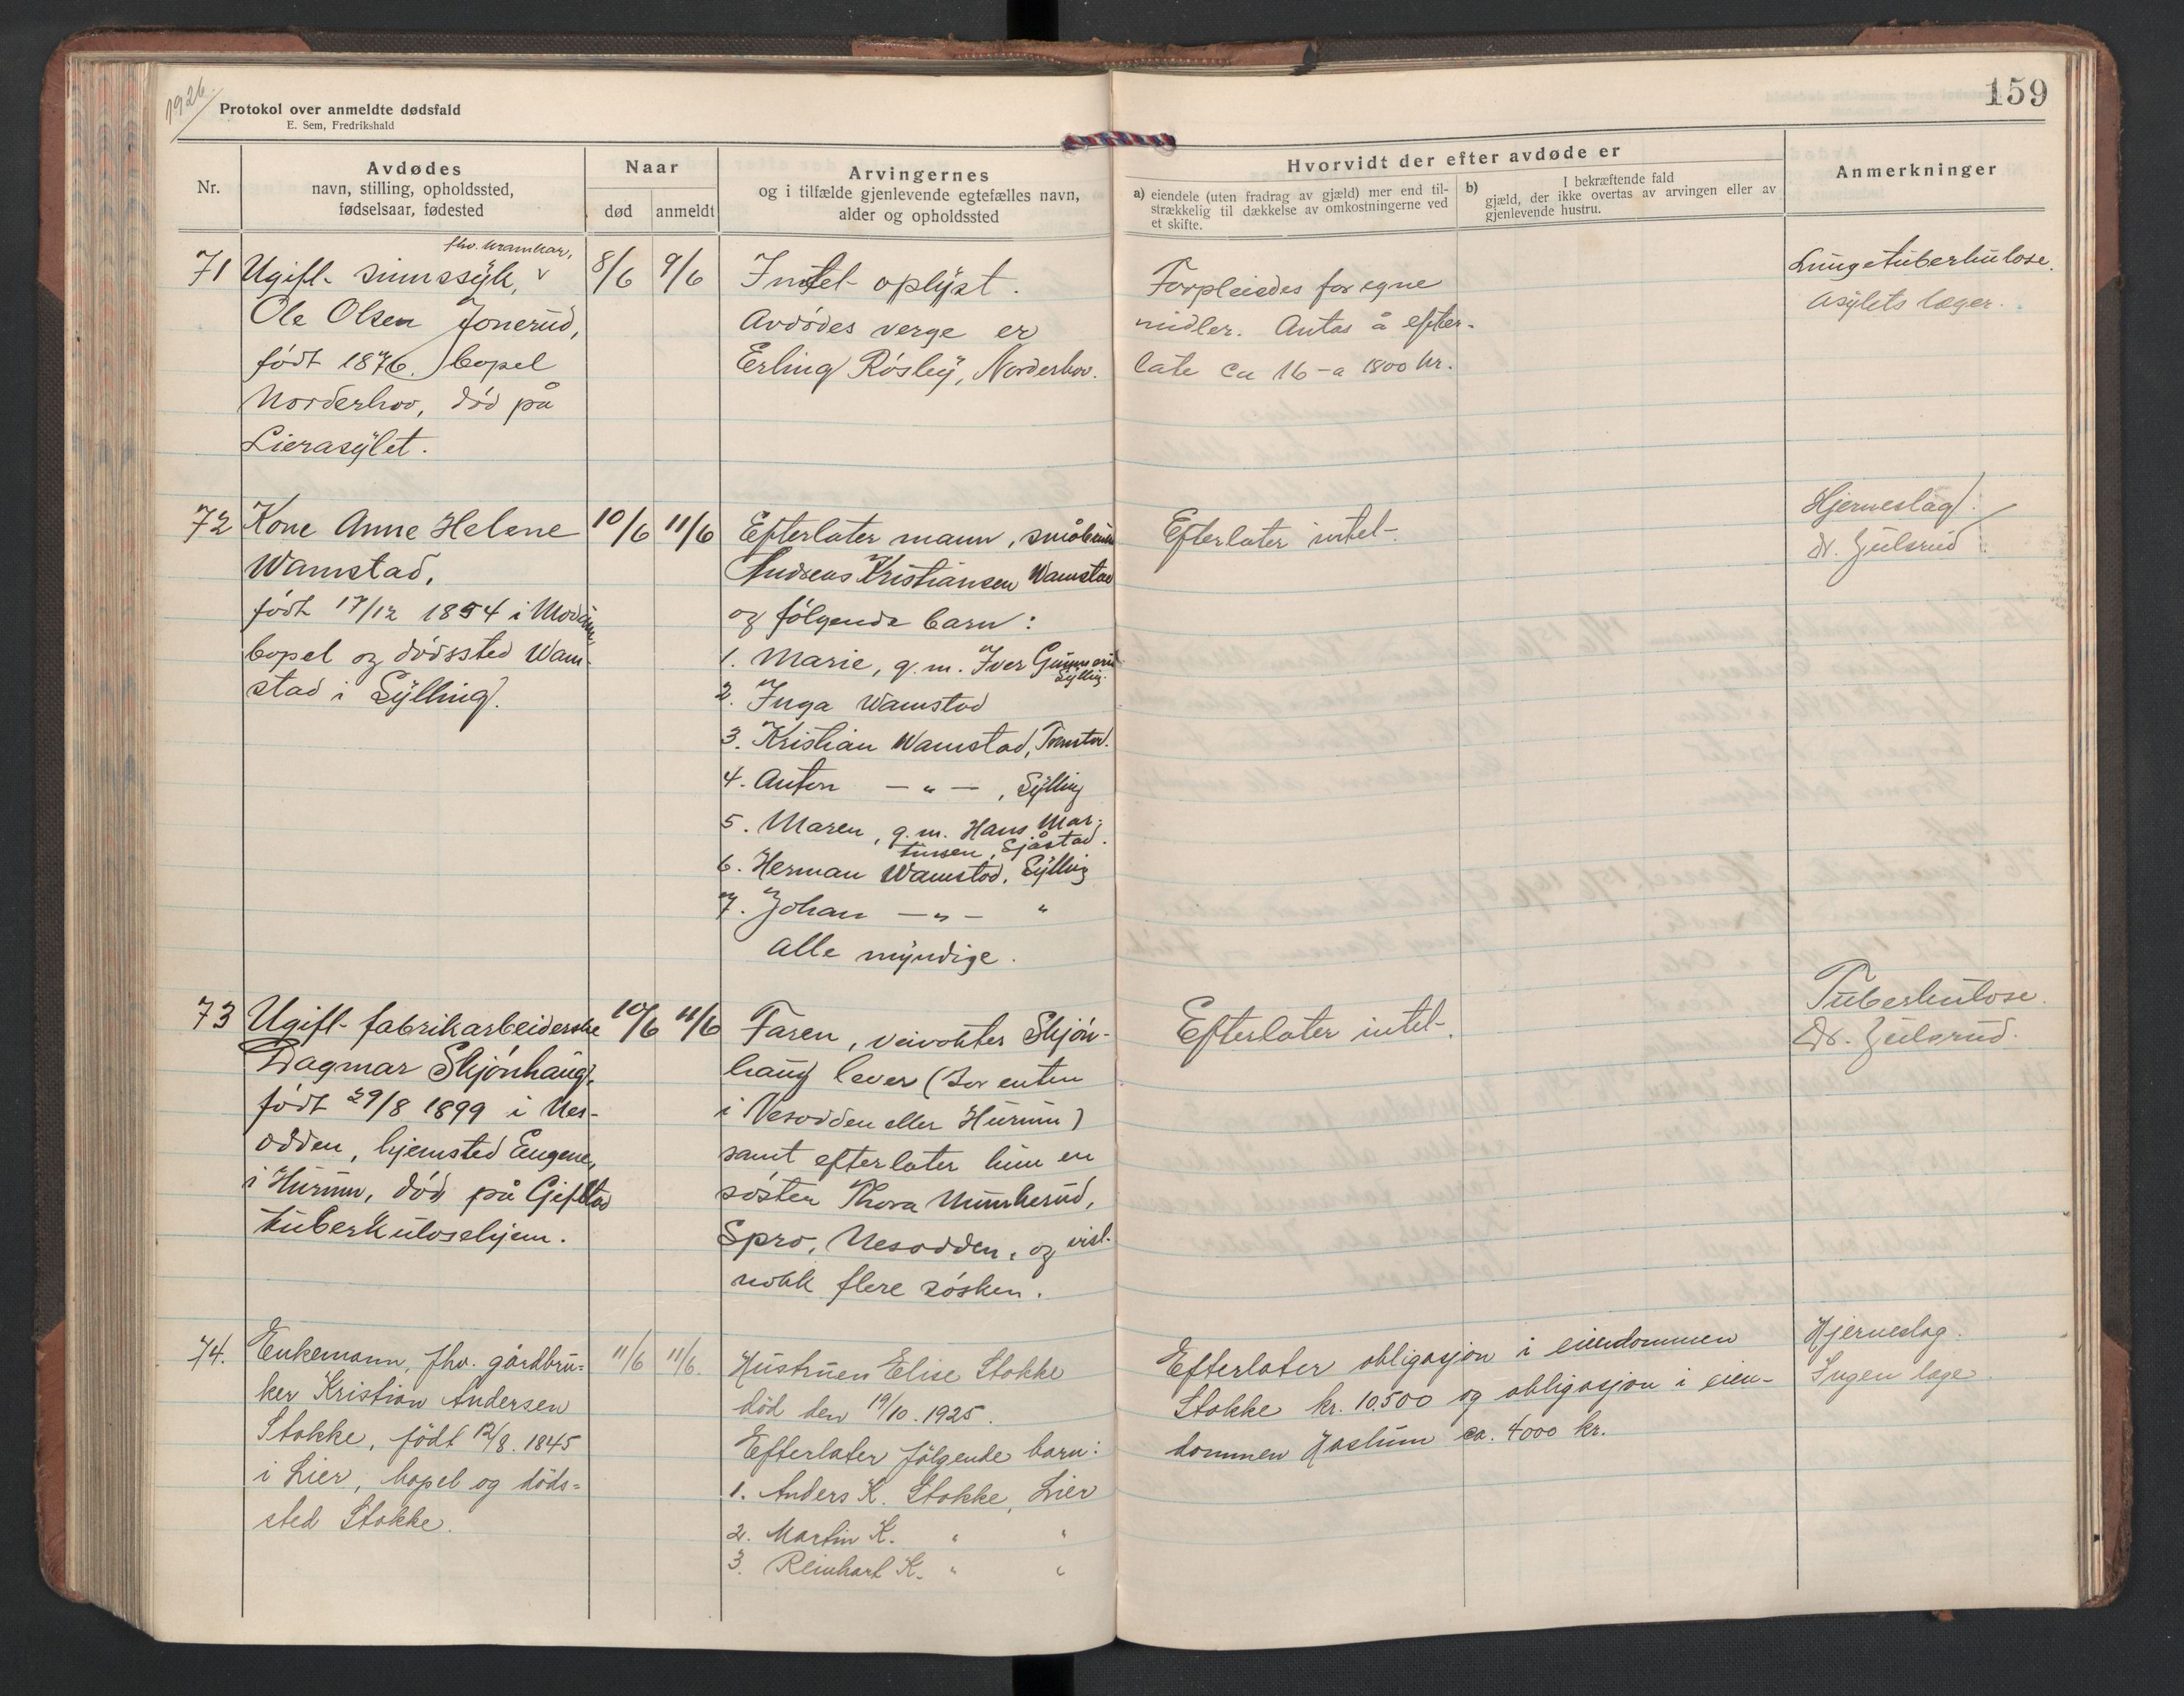 1926.
Protokol over anmeldte dødsfald
E. Sem, Fredrikshald
159
Nr.
Avdødes
navn, stilling, opholdssted,
fødselsaar, fødested
Naar
død
anmeldt
Arvingernes
og i tilfælde gjenlevende egtefælles navn,
alder og opholdssted
Hvorvidt der efter avdøde er
a) eiendele (uten fradrag av gjæld) mer end til-
strækkelig til dækkelse av omkostningerne ved
et skifte.
b) I bekræftende fald
gjæld, der ikke overtas av arvingen eller av
gjenlevende hustru.
Anmerkninger
71
fhv. kramkar,
Ugift sinnssyk, v
Ole Olsen Jonerud,
født 1876. bopel
Norderhov, død på
Lierasylet.
8/6
9/6
Intet oplyst.
Avdødes verge er
Erling Røsby, Norderhov.
Forpleiedes for egne
midler. Antas å efter-
late ca 16-a 1800 kr.
Lungetuberkulose.
Asylets læger.
72
Kone Anne Helene
Wamstad,
født 17/12 1854 i Modum,
bopel og dødssted Wam-
stad i Sylling.
10/6
11/6
Efterlater mann, småbruker
Andreas Kristiansen Wamstad
og følgende barn:
1. Marie, g.m. Iver Gunnerud
Sylling.
2. Inga Wamstad
3. Kristian Wamstad, Tranby.
4. Anton — " — , Sylling
5. Maren, g.m. Hans Mar-
tinsen, Sjåstad.
6. Herman Wamstad, Sylling
7. Johan — " — "
alle myndige.
Efterlater intet.
Hjerneslag.
dr. Zulsrud
73
Ugift fabrikarbeiderske
Dagmar Skjønhaug,
født 29/8 1899 i Nes-
odden, hjemsted Engene,
i Hurum, død på Gifstad
tuberkulosehjem.
10/6
11/6
Faren, veivokter Skjøn-
haug lever (bor enten
i Nesodden eller Hurum)
samt efterlater hun en
søster Thora Munkerud,
Spro, Nesodden, og vist-
nokk flere søsken.
Efterlater intet.
Tuberkulose.
Dr. Zulsrud.
74.
Enkemann, fhv. gårdbru-
ker Kristian Andersen
Stokke, født 12/8. 1845
i Lier, bopel og døds-
sted Stokke.
11/6
11/6.
Hustruen Elise Stokke
död den 19/10. 1925.
Efterlater følgende barn:
1. Anders K. Stokke, Lier
2. Martin K. " "
3. Reinhart K. " "
Efterlater obligasjon i eiendommen
Stokke kr. 10.500 og obligasjon i eien-
dommen Haslum ca. 4000 kr.
Hjerneslag.
Ingen læge